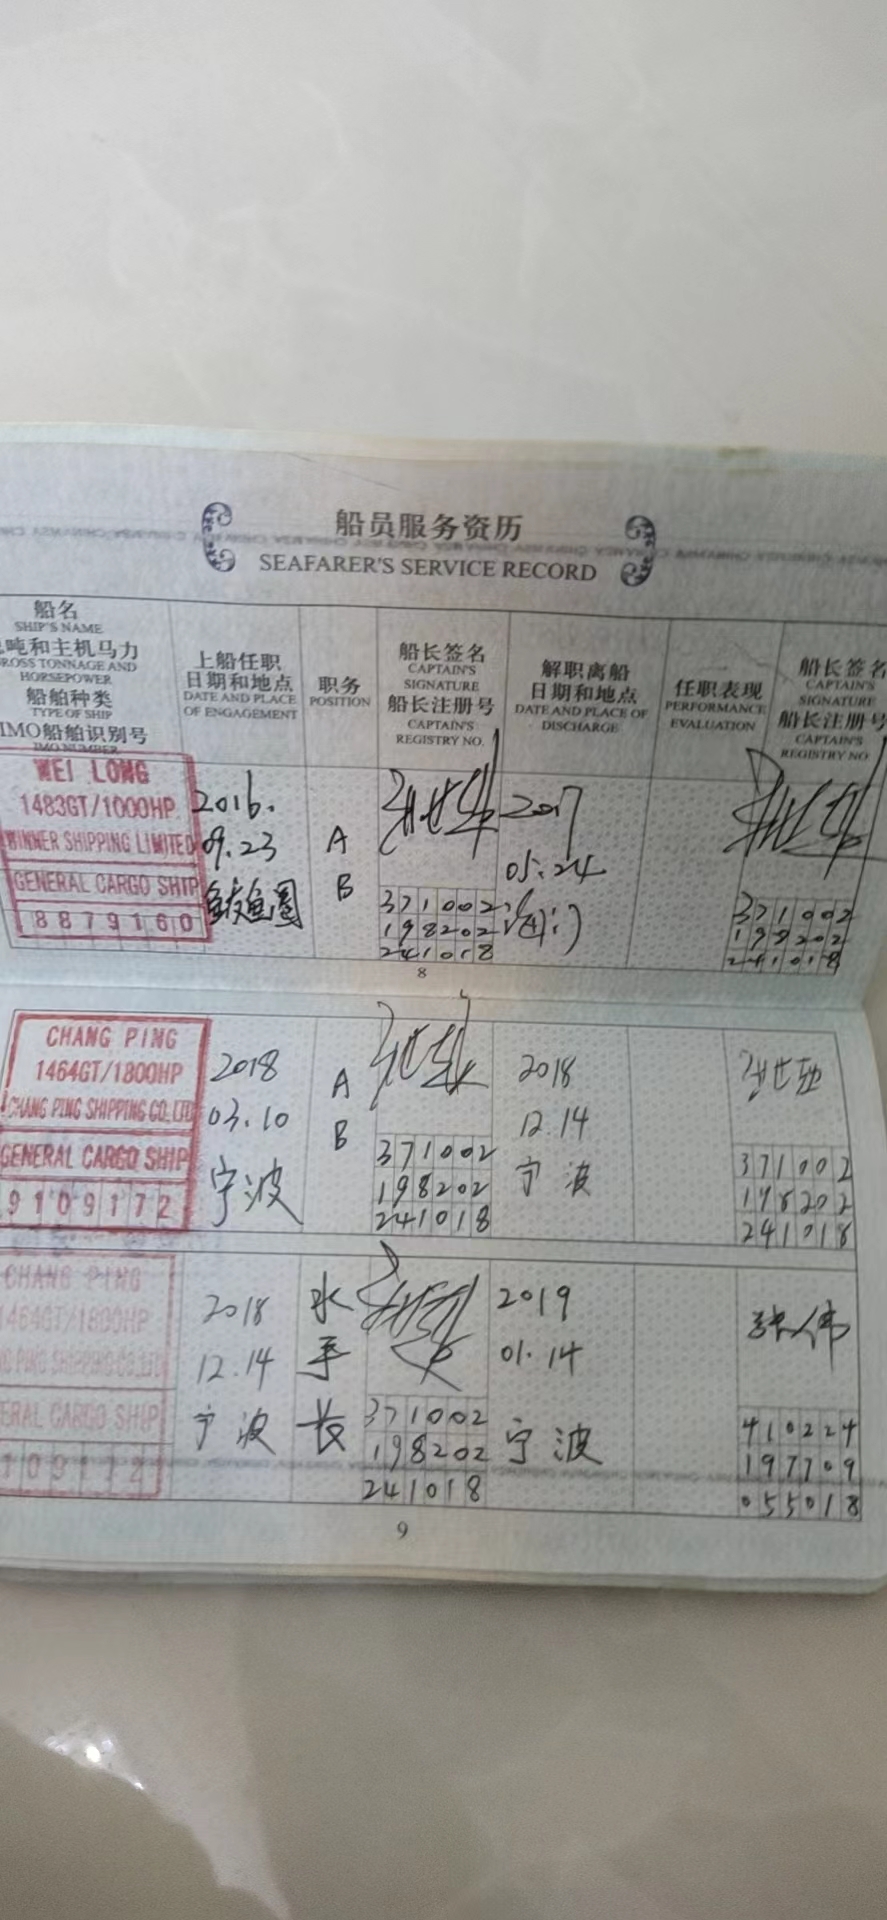 船员服务资历
SEAFARER'S SERVICE RECORD
船名
SHIP'S NAME
吨和主机马力
GROSS TONNAGE AND
HORSEPOWER
船舶种类
TYPE OF SHIP
IMO船舶识别号
IMO NUMBER
上船任职
日期和地点
DATE AND PLACE
OF ENGAGEMENT
职务
POSITION
船长签名
CAPTAIN'S
SIGNATURE
船长注册号
CAPTAIN'S
REGISTRY NO.
解职离船
日期和地点
DATE AND PLACE OF
DISCHARGE
任职表现
PERFORMANCE
EVALUATION
船长签名
CAPTAIN'S
SIGNATURE
船长注册号
CAPTAIN'S
REGISTRY NO
WEI LONG
1483GT/1000HP
WINNER SHIPPING LIMITED
GENERAL CARGO SHIP
8879160
2016.
09.23
鲅鱼圈
A
B
371002
198202
241018
2017
05.24
371002
198202
241018
8
CHANG PING
1464GT/1800HP
CHANG PING SHIPPING CO.,LTD
GENERAL CARGO SHIP
9109172
2018
03.10
宁波
A
B
371002
198202
241018
2018
12.14
宁波
371002
198202
241018
CHANG PING
1464GT/1800HP
NG PING SHIPPING CO.,LTD
ERAL CARGO SHIP
109172
2018
12.14
宁波
水
手
长
371002
198202
241018
2019
01.14
宁波
张伟
410224
197709
055018
9